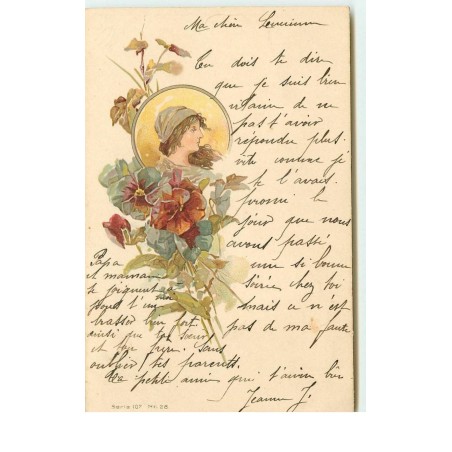 Ma chère
Tu dois te dire
que je suis bien
vilaine de ne
pas t'avoir
répondu plus
vite comme je
te l'avais
promis le
jour que nous
avons passé
une si bonne
soirée chez toi
mais ce n'est
pas de ma faute
Papa
et maman
se joignent a
moi
pour t'em-
brasser bien fort
ainsi que ta sœur
et ton frère. Sans
oublier tes parents.
Ta petite amie qui t'aime bien
Jeanne J.
Serie 107 Nr. 28